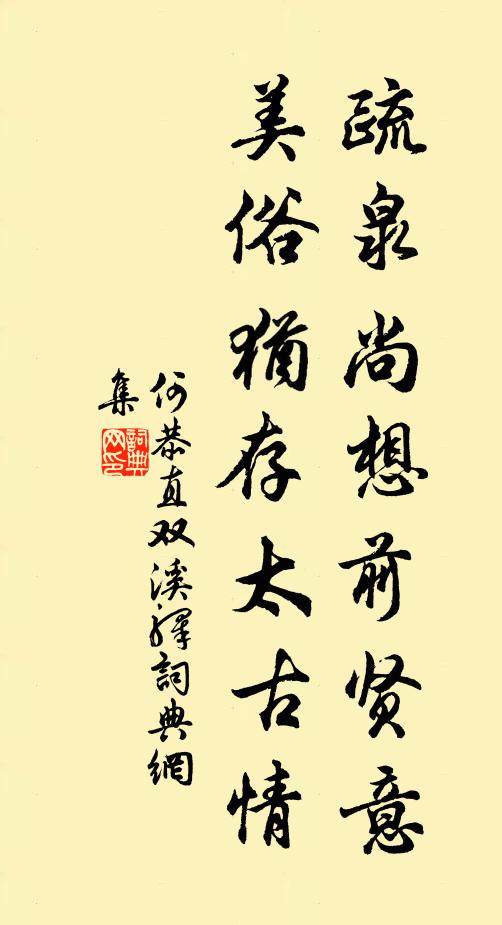 疏泉尚想前贤意
美俗犹存太古情
何恭直双溪驿詞典網
集
詞典
网印